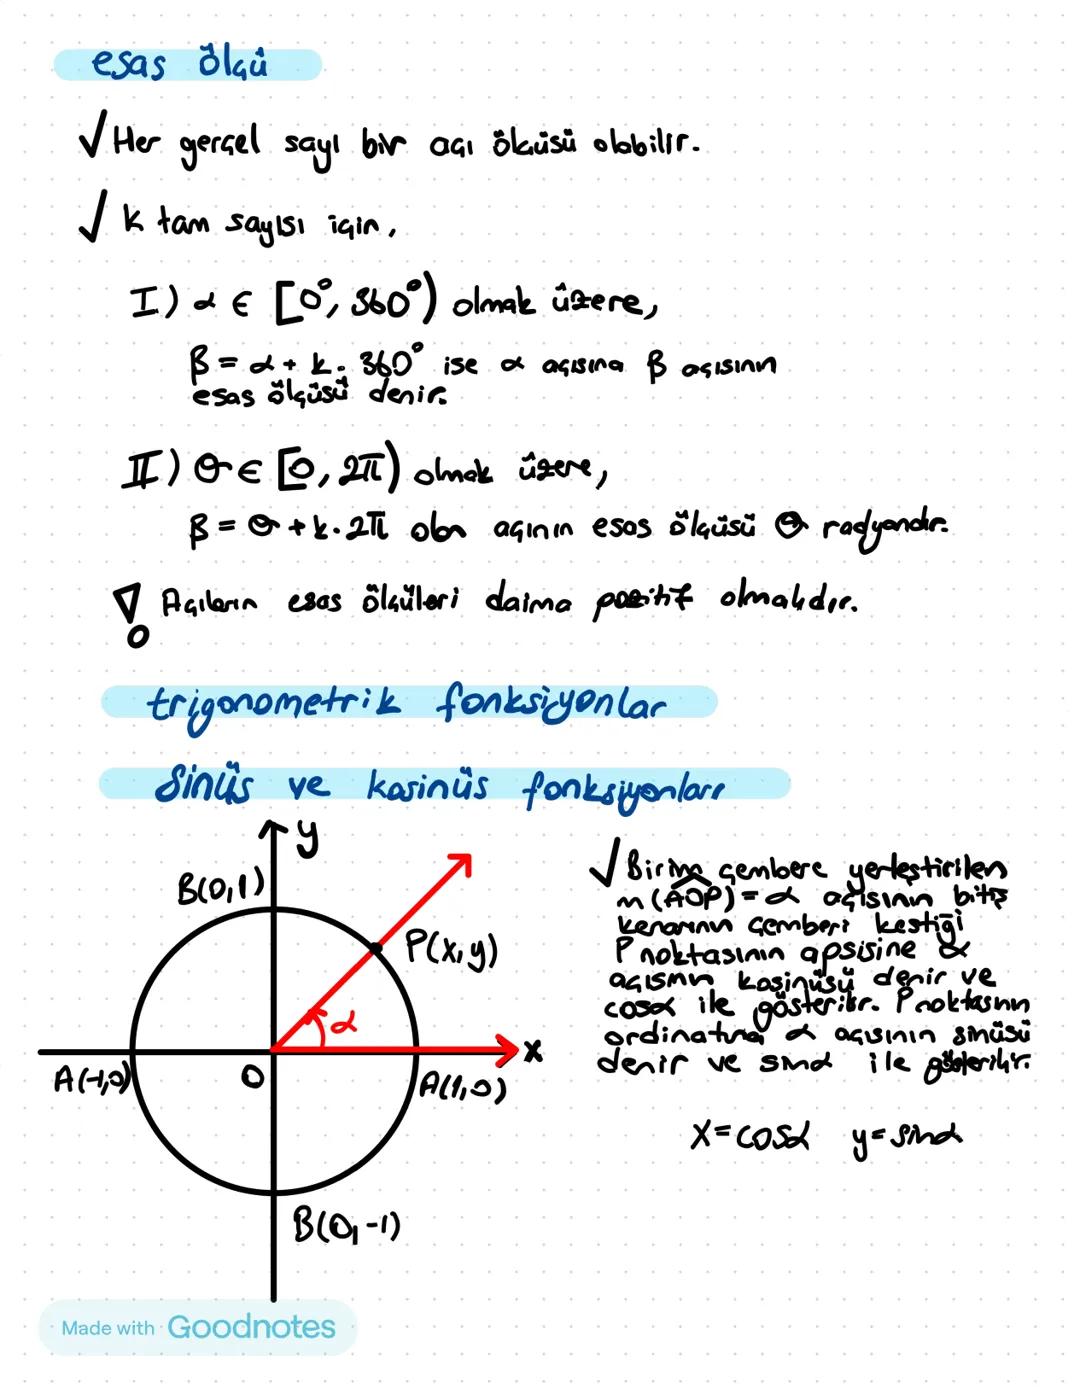 esas ölçü
√ Her gerçel sayı bir açı ölçüsü olabilir.
√ k tam sayısı için,
I) α ∈ [0°, 360°) olmak üzere,
β = α + k . 360° ise α açısına β açısının
esas ölçüsü denir.
II) θ ∈ [0, 2π) olmak üzere,
β = θ + k . 2π olan açının esas ölçüsü θ radyandır.
! Açıların esas ölçüleri daima pozitif olmalıdır.
trigonometrik fonksiyonlar
Sinüs ve kosinüs fonksiyonları
y
B(0,1)
P(x,y)
α
x
A(-1,0)
O
A(1,0)
B(0,-1)
√ Birim çembere yerleştirilen
m(AOP) = α açısının bitiş
kenarının çemberi kestiği
P noktasının apsisine α
açısının kosinüsü denir ve
cosα ile gösterilir. P noktasının
ordinatına α açısının sinüsü
denir ve sinα ile gösterilir.
x = cosα y = sinα
Made with Goodnotes